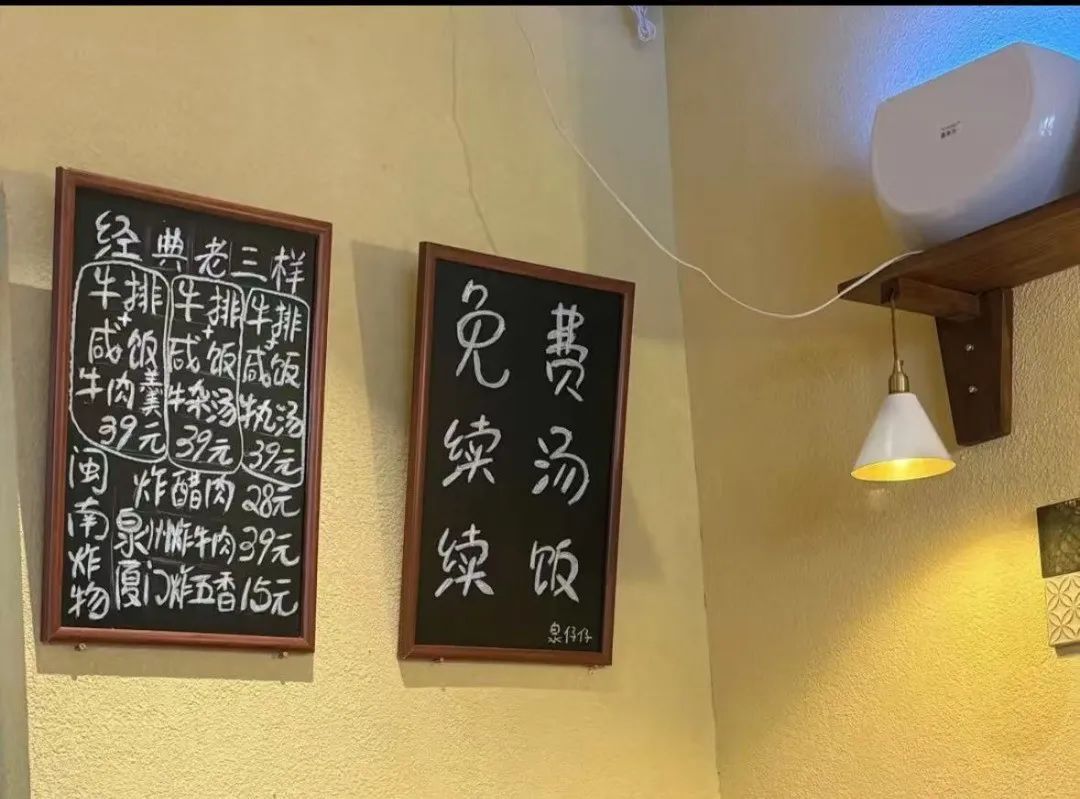 经典老三样
牛排
+
咸饭
牛肉羹
39元
牛排
+
咸饭
牛杂汤
39元
牛排
+
咸饭
牛丸汤
39元
闽南炸物
炸醋肉 28元
泉州炸牛肉 39元
厦门炸五香 15元
免费
续汤
续饭
泉仔仔